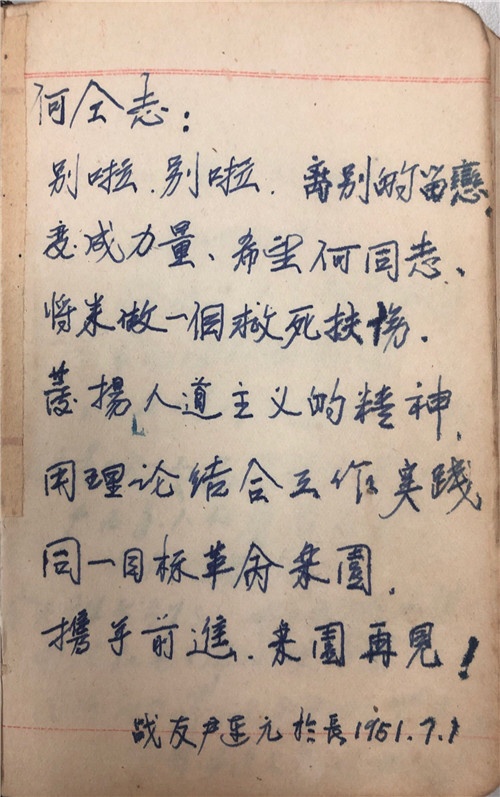 何仝志:
别啦.别啦.离别的留戀
变成力量、希望何同志、
将来做一個救死扶伤.
發揚人道主义的精神.
用理论结合工作实践
同一目标革命来園.
携手前進.来園再见!
战友尹连元於長1951.7.1